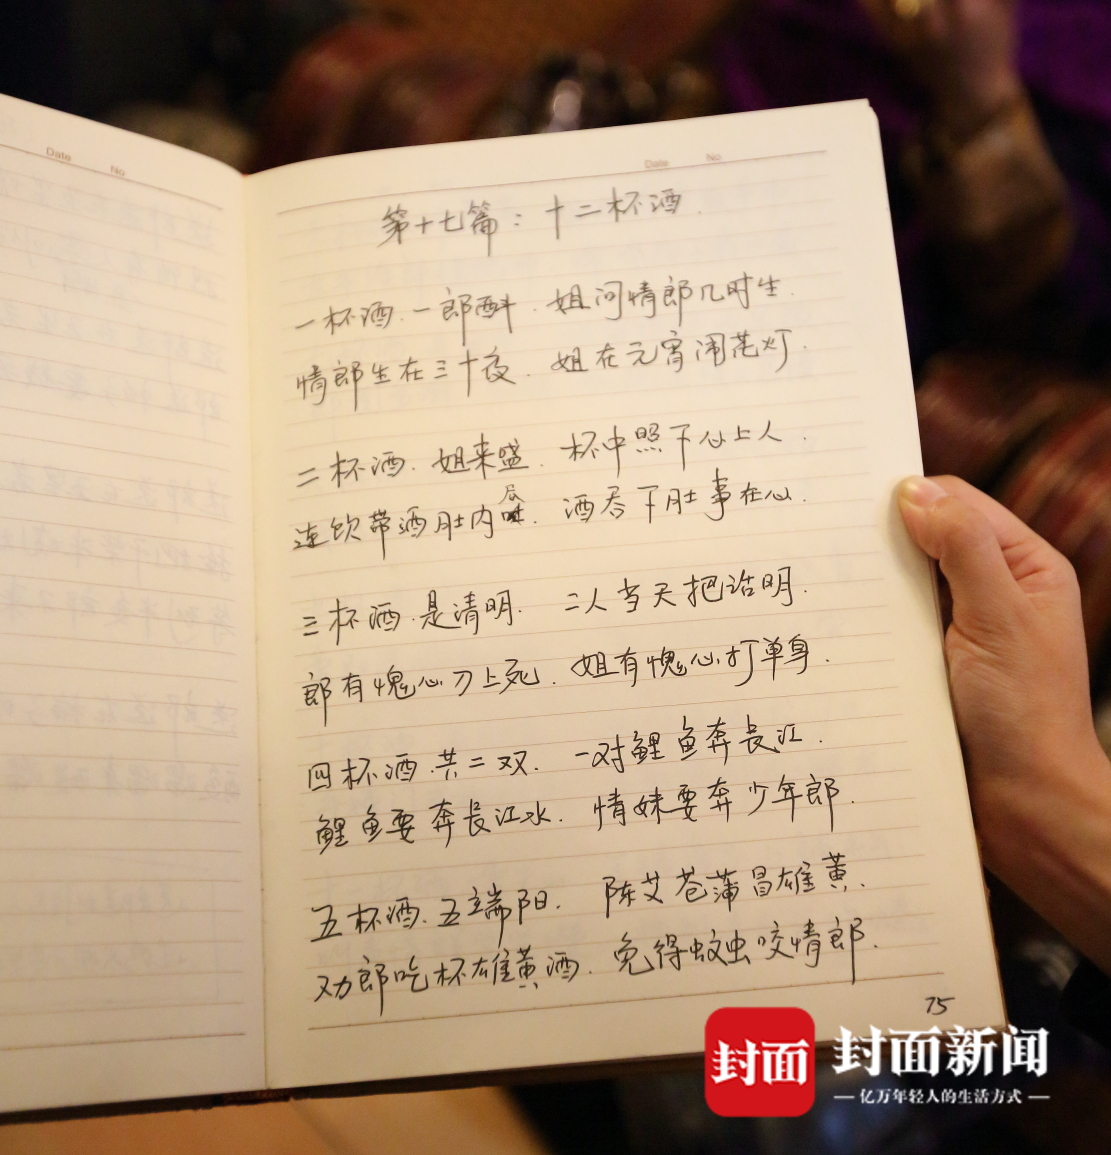 Date No
Date No
第十七篇：十二杯酒.
一杯酒.一郎酙.姐问情郎几时生.
情郎生在三十夜.姐在元宵闹花灯.
二杯酒.姐来盛.杯中照下心上人.
连饮带酒肚内.酒吞下肚事在心.
三杯酒.是清明.二人当天把话明.
郎有愧心刀上死.姐有愧心打单身.
四杯酒.共二双.一对鲤鱼奔長江.
鲤鱼要奔長江水.情妹要奔少年郎.
五杯酒.五端阳.陈艾苍蒲冒雄黄.
劝郎吃杯雄黄酒.免得蚊虫咬情郎.
75
封面
封面新闻
亿万年轻人的生活方式